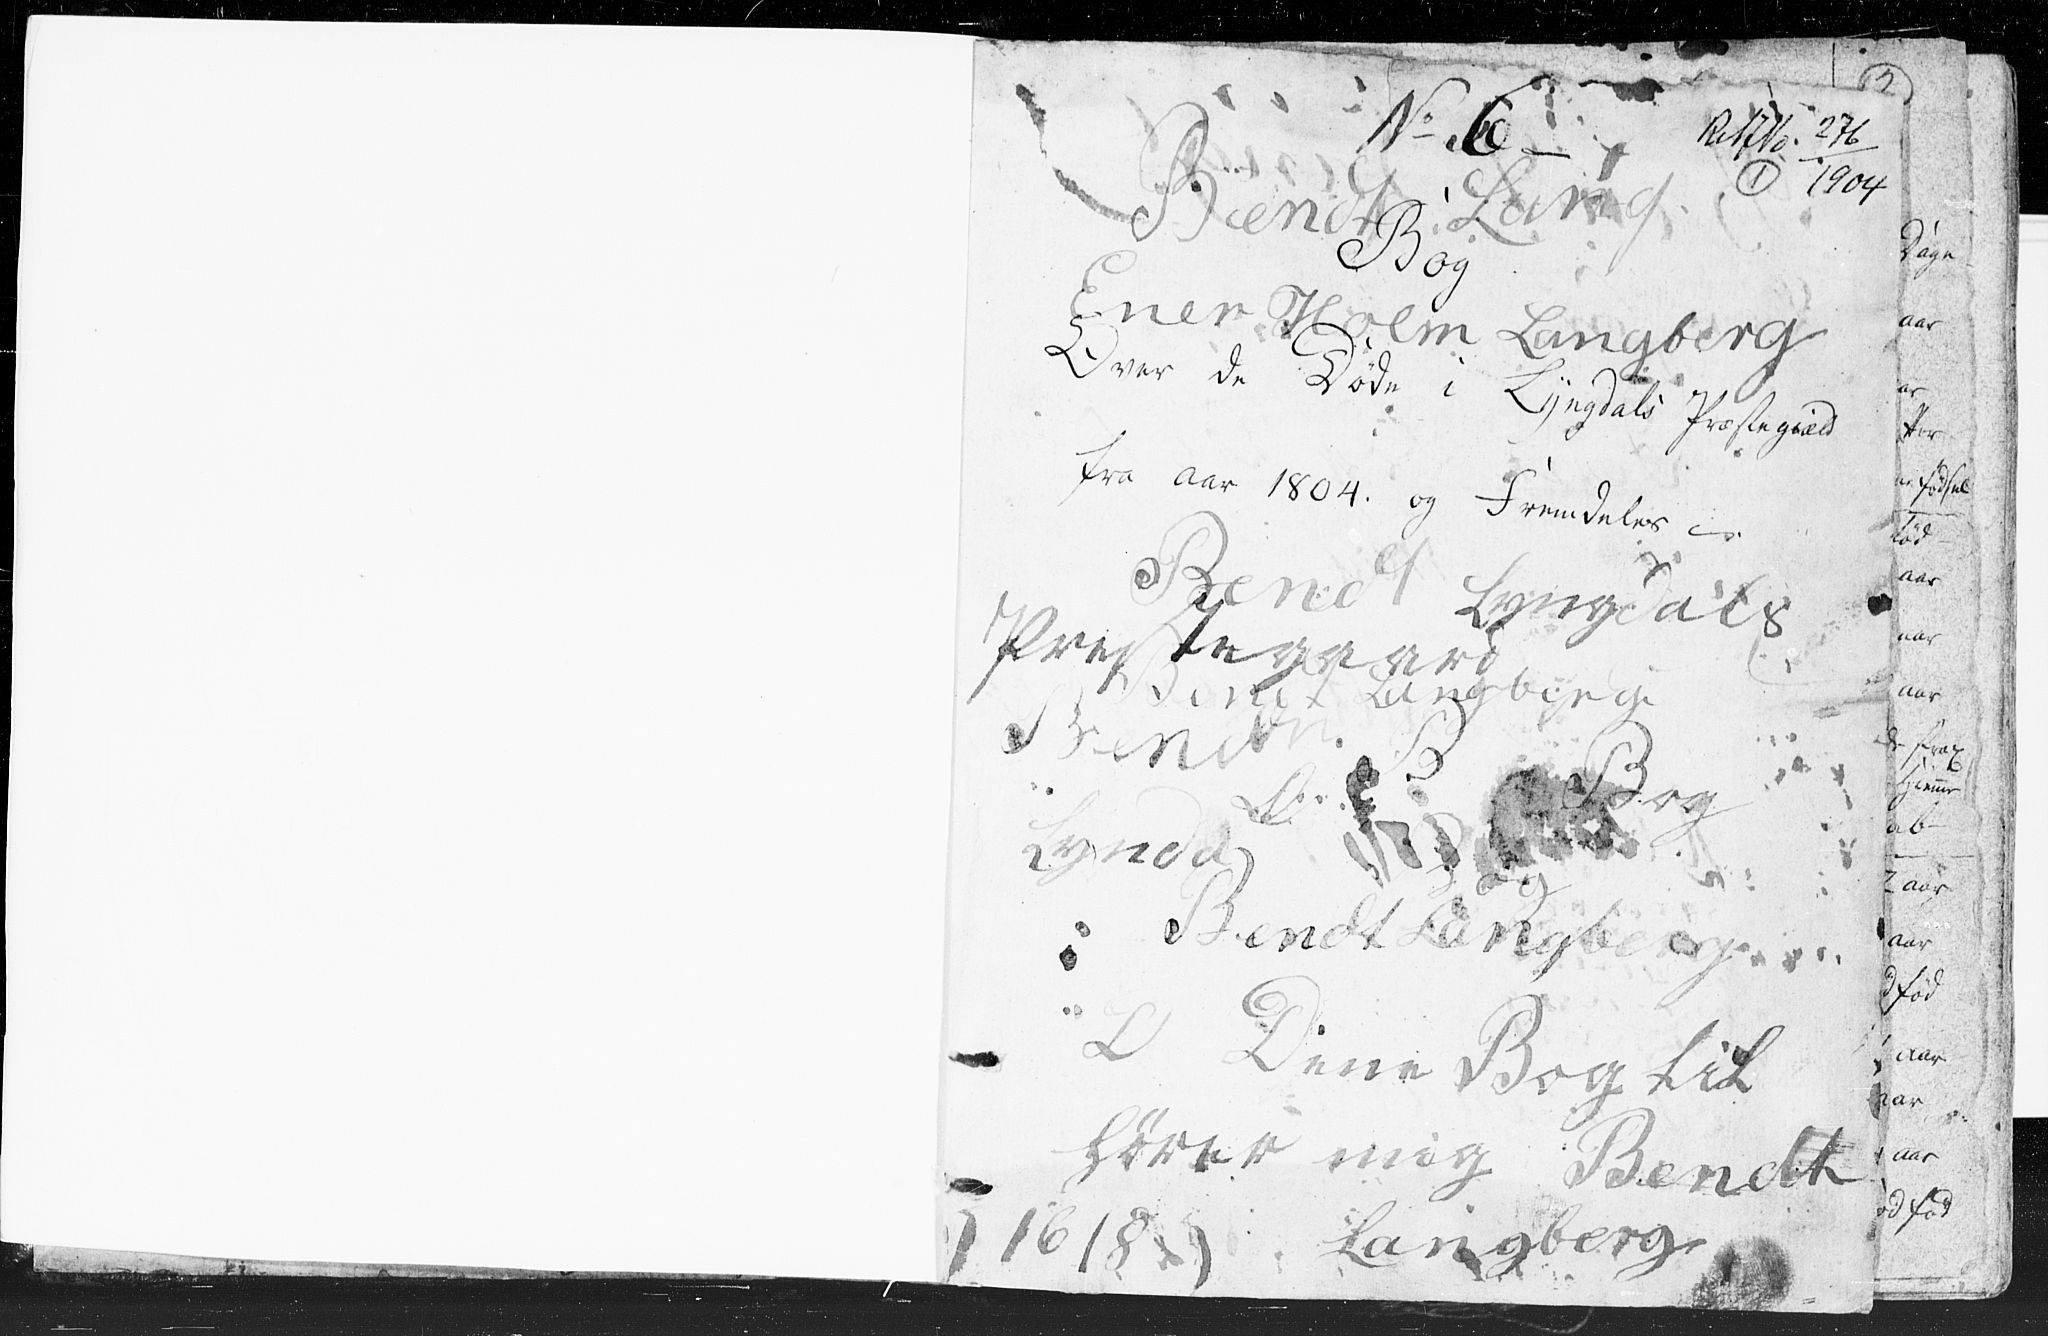 No 6
276
1 1904
Bendt Lang
Bog
Ener Holm Langberg
Over de Døde i Lyngdals Præstegiæld
fra aar 1804. og Fremdeles
Bendt Lyngdals
Prestegaard
Bendt Langberg
Bendt
B Bog
Lynda
Bog
Bendt Langberg
D Dene Bog til
hører mig Bendt
1618 Langberg
2
Dage
aar
ar
fødsel
død
aar
aar
aar
strax
Hiemme
aar
aar
fød
aar
aar
aar
fød